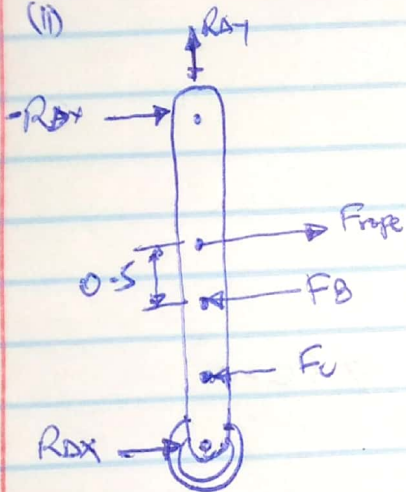 (ii)
RAy
Frope
0.5
FB
Fc
RDX